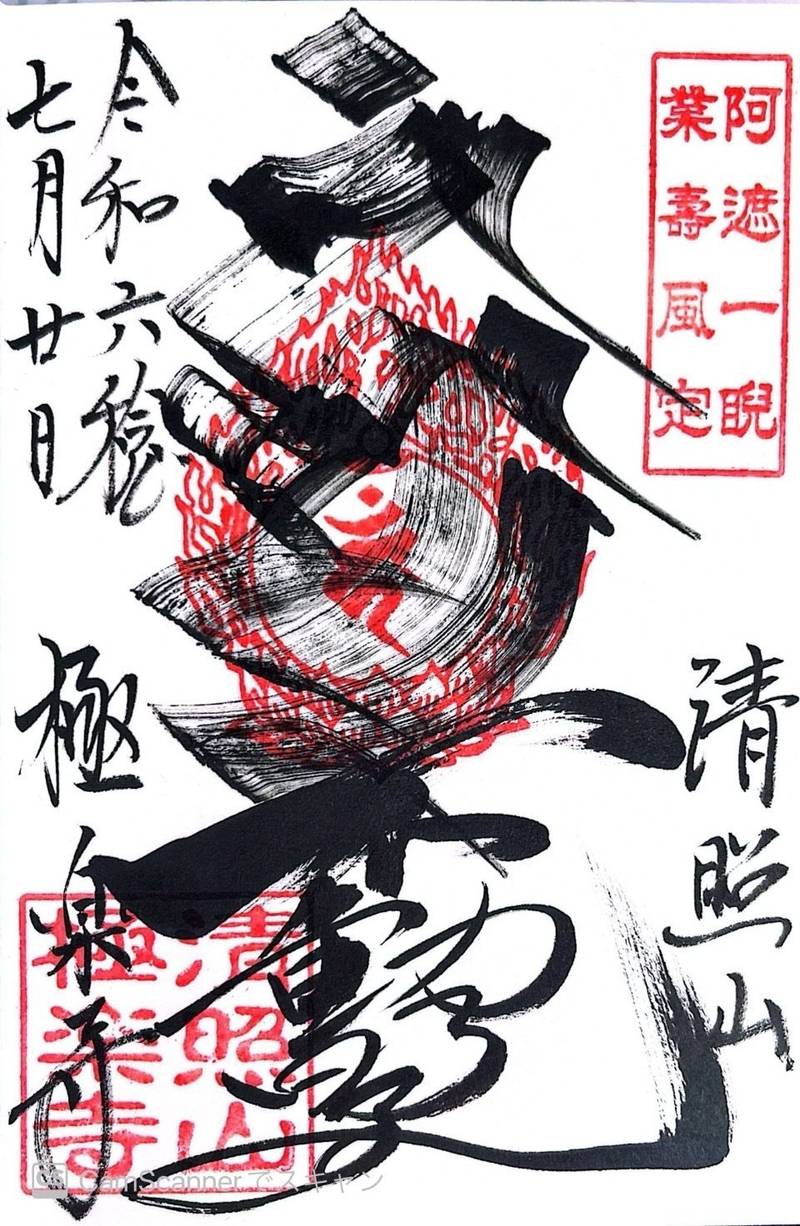 阿遮一睨
業壽風定
清照山
令和六稔
七月廿日
極楽寺
清照山
極楽寺
CS CamScanner でスキャン